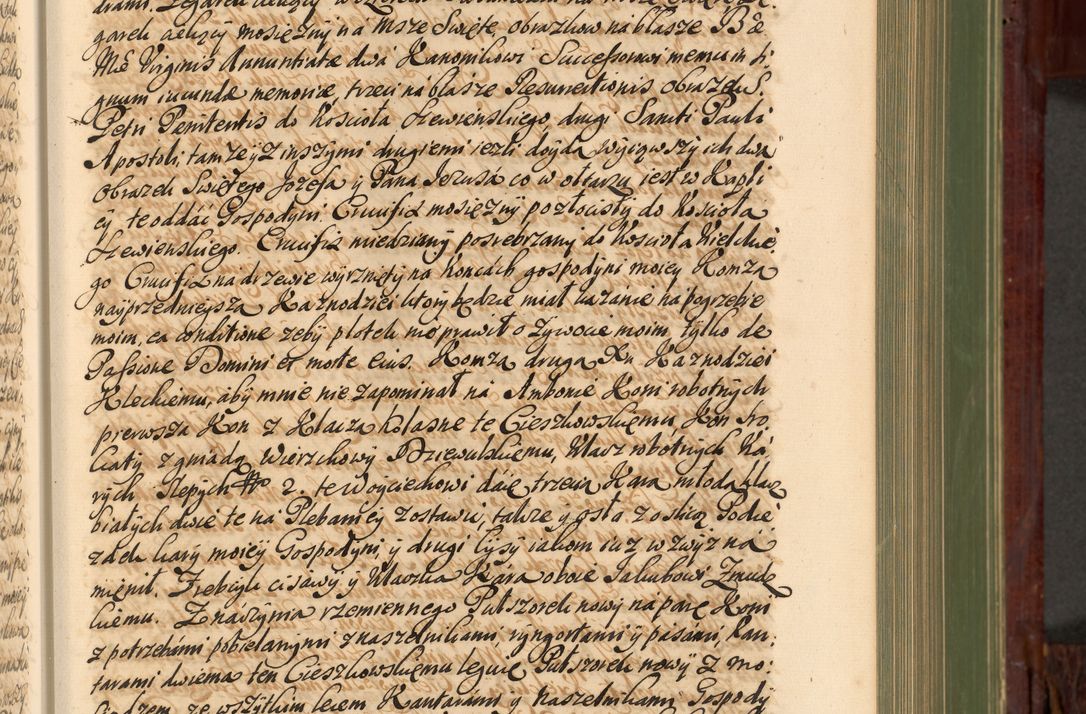 garek cielący mosiężny na Msze Swięte, obrazkow na blasze Bae
Mae Virginis Annuntiatæ dwa Kanonikowi Successorowi memu in si
gnum iucundæ memoriæ, trzeci na blasze Resurrectionis obrazek S.
Petri Penitentis do Kościoła drugi Sancti Pauli
Apostoli, tamże y z inszymi drugiemi iezli doyda wyiąwszy ich dwa
obrazek Swiętego Jozefa y Pana Jezusa co w ołtarzu iest w Kapli
cy te oddać Gospodyni. Crucifix mosiężny pozłocisty do Kościoła
Crucifix miedziany posrebrzany do Kościoła Kielckie
go Crucifix na drzewie wyrznięty na Koncach gospodyni moiey Komża
nayprzednieysza Kaznodziei ktory będzie miał kazanie na pogrzebie
moim, ea conditione zeby plotek nie prawił o żywocie moim tylko de
Passione Domini et morte eius. Komża druga Xu Kaznodziei
Kleckiemu, aby mnie nie zapominał na Ambonie Koni robotnych
pierwsza Kon z Klacza te Cieszkowskiemu, Kon sro
katy z gniada Wierzchowy Dziewulskiemu, Klacz robotnych Ka
rych slepych No 2. te Woyciechowi daię trzecia Kara młoda klacz
białych dwie te na Plebaniey zostawić, także y osła z oslicą Podie
zdek kary moiey Gospodyni y drugi łysy iakom iuz wzwyz na
mienił. Zrebcyk cisawy y Klaczka Kara oboie Jakubowi Zmudz
kiemu. Z naczynia rzemiennego Pułszorek nowy na parę Koni
z potrzebami pobielanymi z naszelnikami, ryngortami y pasami, Kan
tarami dwiema ten Cieszkowskiemu leguię Pułszorek nowy z mo
siądzem ze wszytkim lecem Kantarami y naszelnikami Gospody